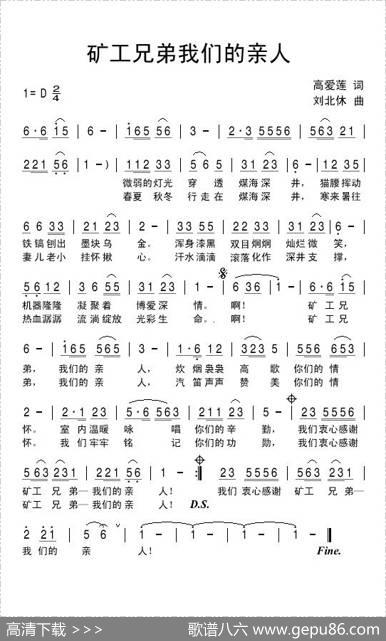 矿工兄弟我们的亲人
1= D 2/4
高爱莲 词
刘北休 曲
6·6 15 | 6 - | 165 56 | 3 - | 2·3 5556 | 563 231 |
221 56 | 1 - ) | 112 33 | 5 65 | 31 23 | 6 - | 12 35 |
微弱的灯光 穿 透 煤海深 井, 猫腰挥动
春夏 秋冬 行走在 煤海深 井, 寒来暑往
6 6 33 | 21 23 | 2 - | 33 55 | 335 53 | 2123 | 6 - |
铁镐刨出 墨块乌 金。 浑身漆黑 双目炯炯 灿烂微 笑,
妻儿老小 挂怀揪 心。 汗水滴滴 滚落化作 深井支 撑,
机器隆隆 凝聚着 博爱深 情。 啊! 矿 工 兄
热血潺潺 流淌绽放 光彩生 命。 啊! 矿 工 兄
弟, 我们的 亲 人, 炊 烟袅袅 高 歌 你们的 情
弟, 我们的 亲 人, 汽 笛声声 赞 美 你们的 情
怀。 室 内温暖 咏 唱 你们的辛 勤, 我们衷心感谢
怀。 我 们牢牢 铭 记 你们的功 勋, 我们衷心感谢
矿工 兄 弟— 我们的亲 人! 我们 衷心感谢 矿工 兄 弟—
矿工 兄 弟— 我们的亲 人! D.S.
2 21 | 5 6 | 1 - | 1 - | 1 - | 1 - ‖
我 们的 亲 人! Fine.
高清下载 >>>
歌谱八六 www.gepu86.com